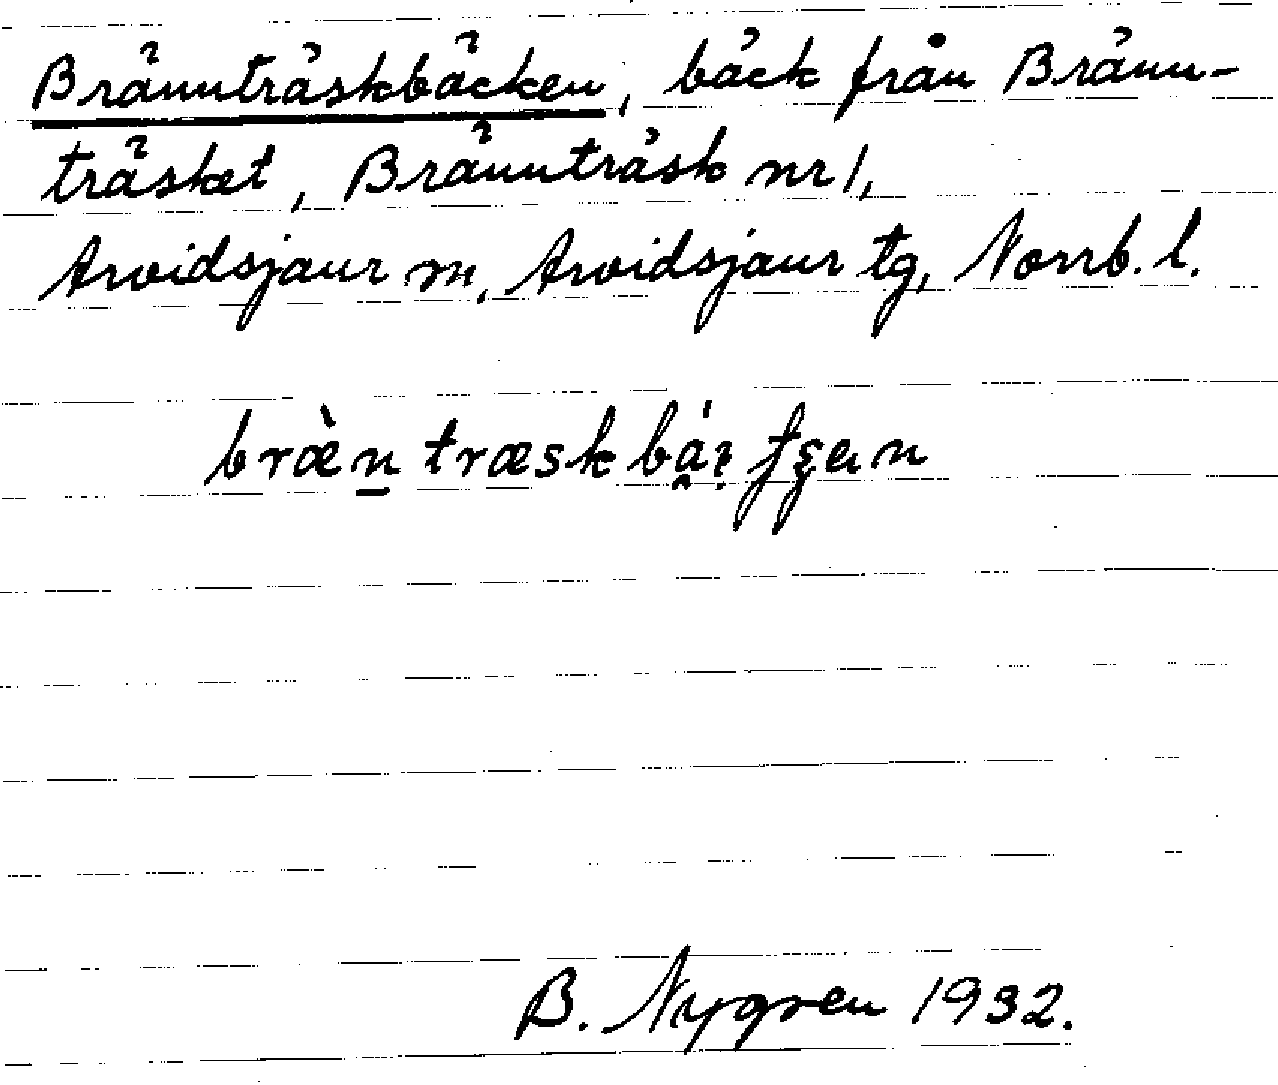 Brännträskbäcken, bäck från Bränn-
träsket, Brännträsk nr 1,
Arvidsjaur sn, Arvidsjaur tg, Norrb. l.
bræ̀n̲træskb
B. Nygren 1932.